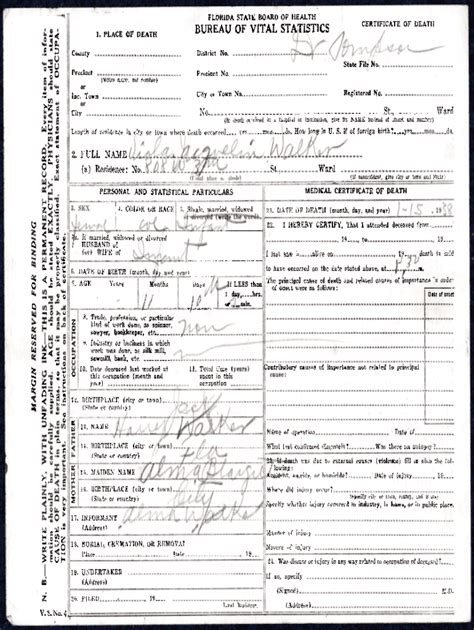 FLORIDA STATE BOARD OF HEALTH
BUREAU OF VITAL STATISTICS
CERTIFICATE OF DEATH
1. PLACE OF DEATH
County
District No.
State File No.
Precinct
Precinct No.
(Write name, not number)
or
Inc. Town
or
City
City or Town No.
No. St., Ward
(If death occurred in a hospital or institution, give its NAME instead of street and number)
Length of residence in city or town where death occurred yrs. mos. ds. How long in U. S. if of foreign birth? yrs. mos. ds.
2. FULL NAME Viola Walker
(a) Residence: No. St. Ward
(Usual place of abode) (If nonresident, give city or town and State)
PERSONAL AND STATISTICAL PARTICULARS
3. SEX
4. COLOR OR RACE
5. Single, married, widowed,
or divorced (write the word)
5a. If married, widowed or divorced
HUSBAND of
(or) WIFE of
Infant
6. DATE OF BIRTH (month, day, and year)
7. AGE Years Months Days
If LESS than
1 day, hrs.
or min.
11 10
OCCUPATION
8. Trade, profession, or particular
kind of work done, as spinner,
sawyer, bookkeeper, etc.
9. Industry or business in which
work was done, as silk mill,
sawmill, bank, etc.
10. Date deceased last worked at
this occupation (month and
year)
11. Total time (years)
spent in this
occupation
12. BIRTHPLACE (city or town)
(State or country)
FATHER
13. NAME Walker
14. BIRTHPLACE (city or town)
(State or country)
MOTHER
15. MAIDEN NAME Alma
16. BIRTHPLACE (city or town)
(State or country)
City
17. INFORMANT Alma Walker
(Address)
18. BURIAL, CREMATION, OR REMOVAL
Place Date 19
19. UNDERTAKER
(Address)
20. FILED 19
Local Registrar.
V. S. No. 4
MEDICAL CERTIFICATE OF DEATH
21. DATE OF DEATH (month, day, and year) 1-15
22. I HEREBY CERTIFY, That I attended deceased from
19 to 19
I last saw h alive on 19 death is said
to have occurred on the date stated above, at m.
The principal cause of death and related causes of importance in order
of onset were as follows:
Date of onset
Contributory causes of importance not related to principal
cause:
Name of operation Date of
What test confirmed diagnosis? Was there an autopsy?
23. If death was due to external causes (violence) fill in also the following:
Accident, suicide, or homicide? Date of injury 19
Where did injury occur?
(Specify city or town, county, and State)
Specify whether injury occurred in industry, in home, or in public place.
Manner of injury
Nature of injury
24. Was disease or injury in any way related to occupation of deceased?
If so, specify
(Signed) M. D.
(Address)
MARGIN RESERVED FOR BINDING
N. B. WRITE PLAINLY, WITH UNFADING INK—THIS IS A PERMANENT RECORD. Every item of information should be carefully supplied. AGE should be stated EXACTLY. PHYSICIANS should state CAUSE OF DEATH in plain terms, so that it may be properly classified. Exact statement of OCCUPATION is very important. See instructions on back of certificate.